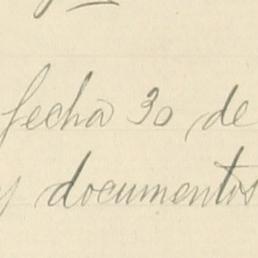 fecha 30 de
y documentos